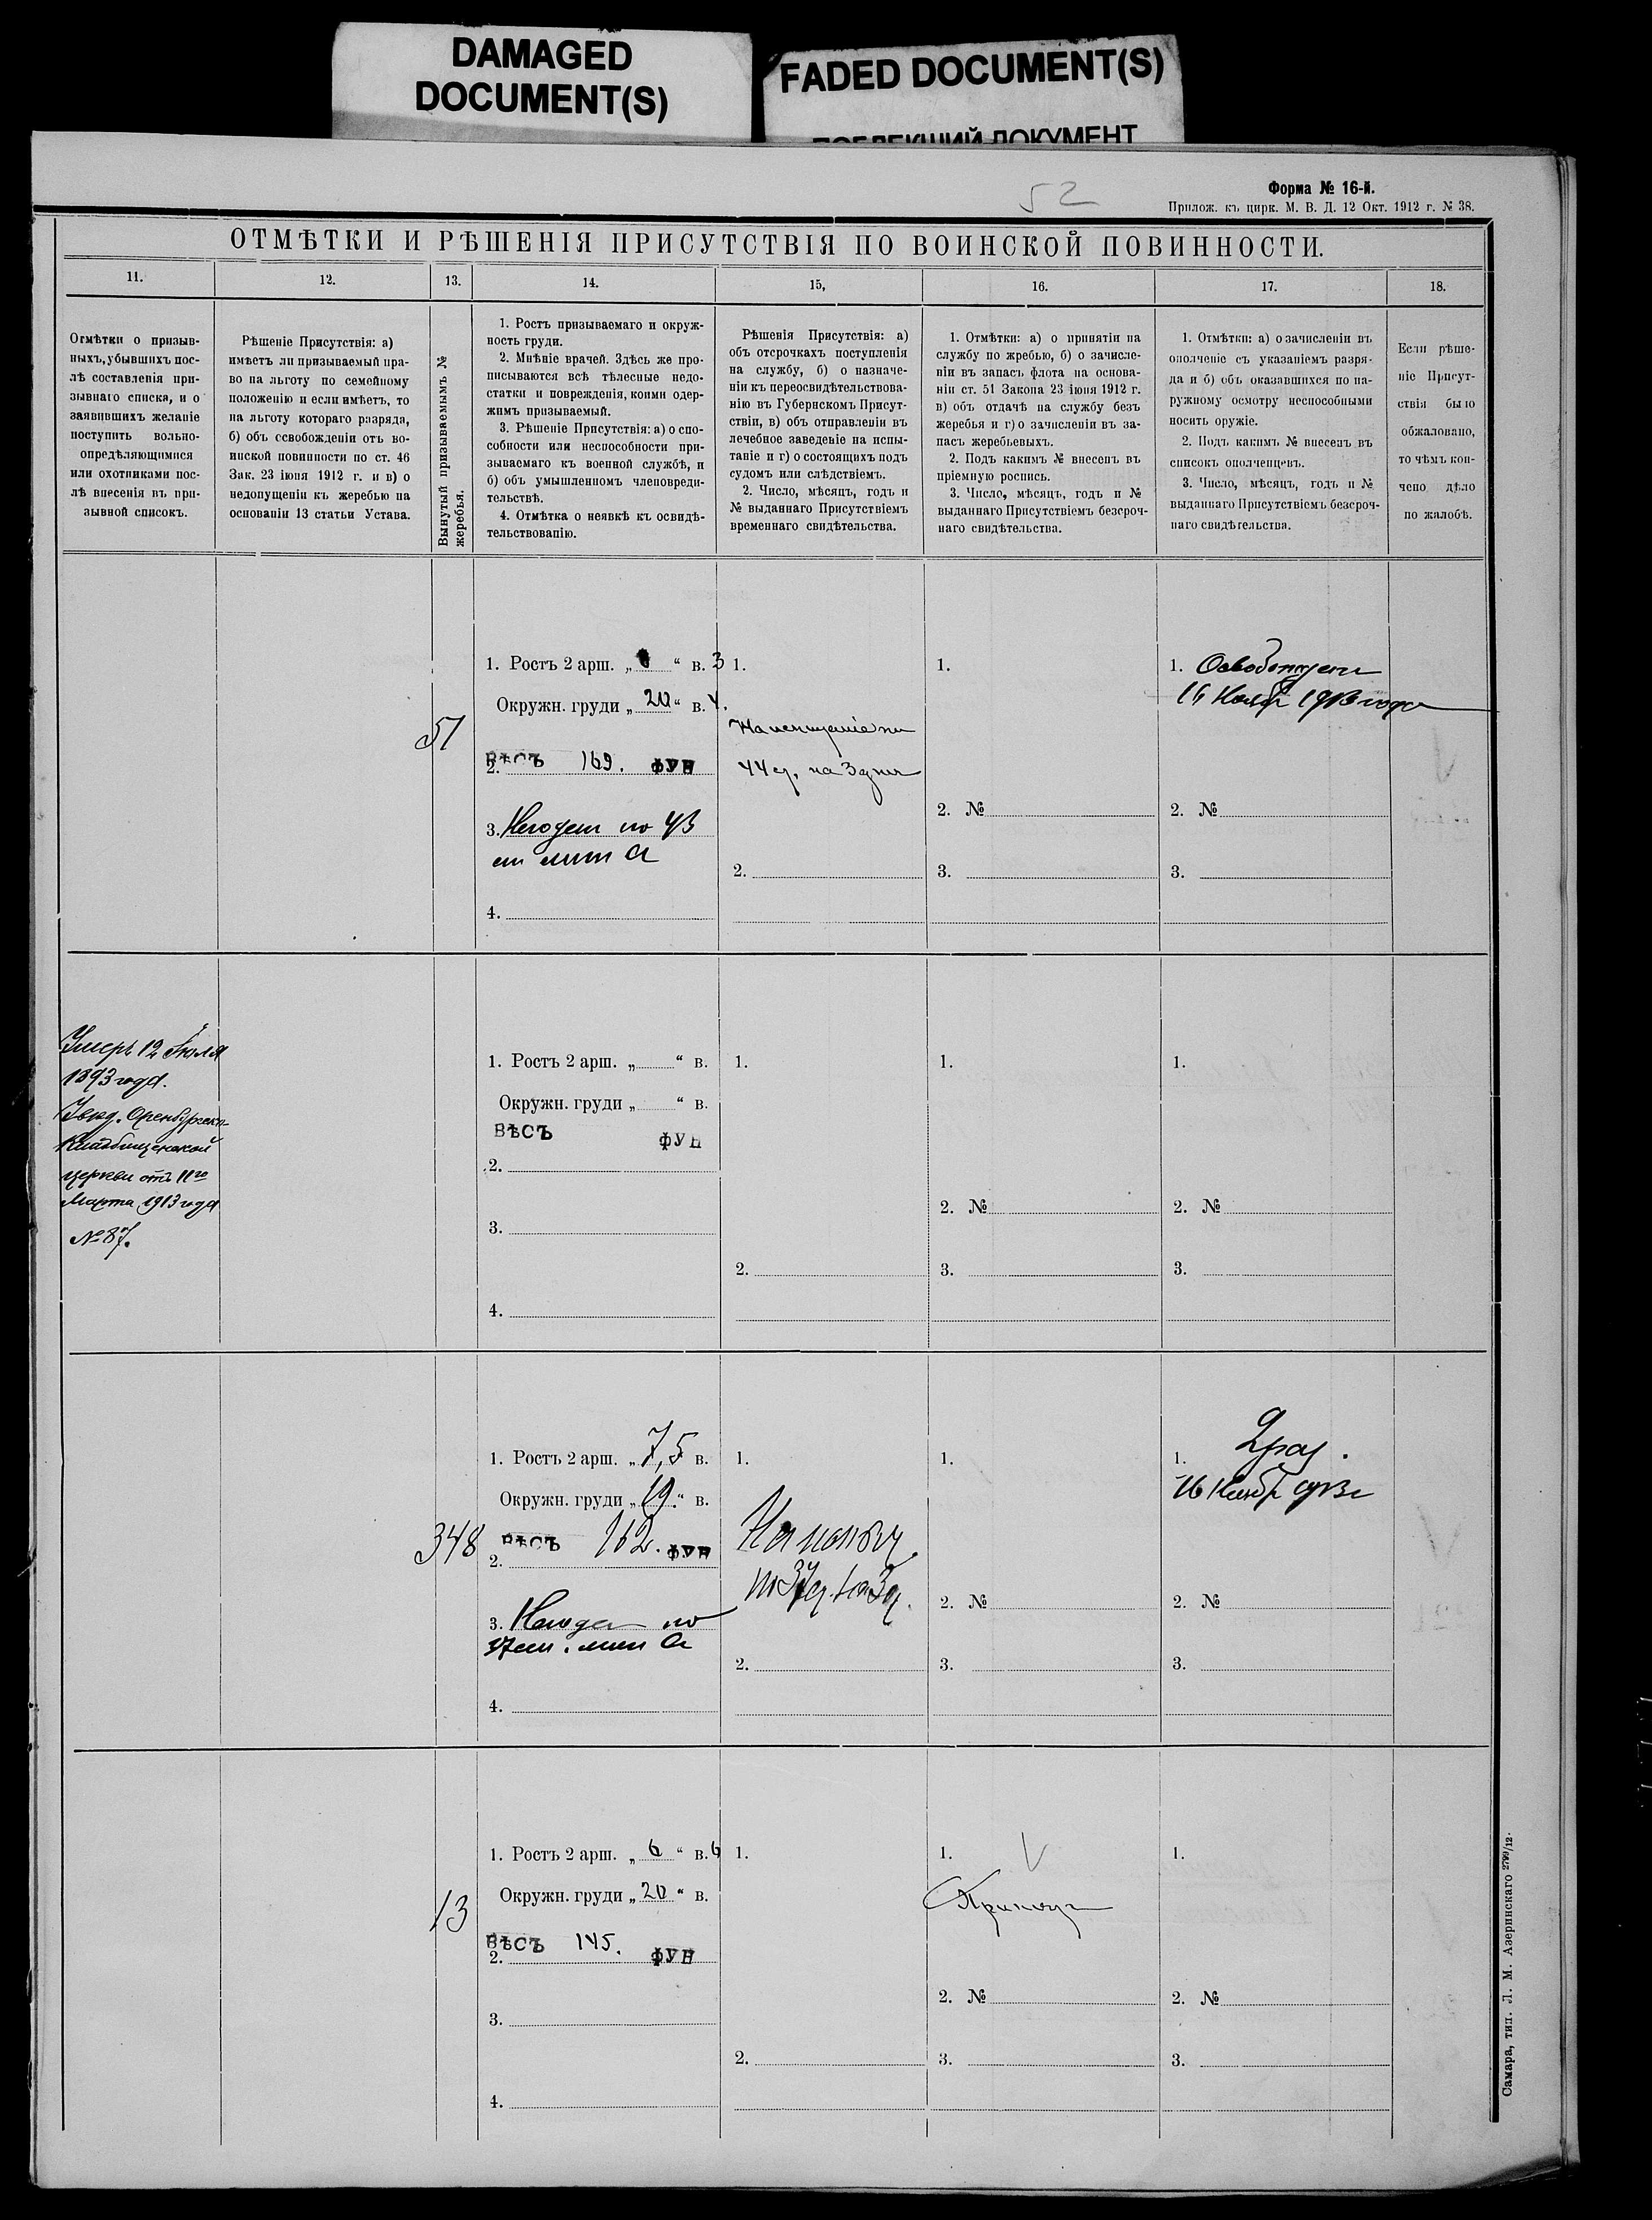 DAMAGED
DOCUMENT(S)
FADED DOCUMENT(S)
52
Форма № 16-й.
Прилож. къ цирк. М. В. Д. 12 Окт. 1912 г. № 38.
ОТМѢТКИ И РѢШЕНІЯ ПРИСУТСТВІЯ ПО ВОИНСКОЙ ПОВИННОСТИ.
11.
12.
13.
14.
15,
16.
17.
18.
Отмѣтки о призыв-
ныхъ, убывшихъ пос-
лѣ составленія при-
зывнаго списка, и о
заявившихъ желаніе
поступить вольно-
опредѣляющимися
или охотниками пос-
лѣ внесенія въ при-
зывной списокъ.
Рѣшеніе Присутствія: а)
имѣетъ ли призываемый пра-
во на льготу по семейному
положенію и если имѣетъ, то
на льготу котораго разряда,
б) объ освобожденіи отъ во-
инской повинности по ст. 46
Зак. 23 іюня 1912 г. и в) о
недопущеніи къ жеребью на
основаніи 13 статьи Устава.
Вынутый призываемымъ №
жеребья.
1. Ростъ призываемаго и окруж-
ность груди.
2. Мнѣніе врачей. Здѣсь же про-
писываются всѣ тѣлесные недо-
статки и поврежденія, коими одер-
жимъ призываемый.
3. Рѣшеніе Присутствія: а) о спо-
собности или неспособности при-
зываемаго къ военной службѣ, и
б) объ умышленномъ членовреди-
тельствѣ.
4. Отмѣтка о неявкѣ къ освидѣ-
тельствованію.
Рѣшенія Присутствія: а)
объ отсрочкахъ поступленія
на службу, б) о назначе-
ніи къ переосвидѣтельствова-
нію въ Губернскомъ Присут-
ствіи, в) объ отправленіи въ
лечебное заведеніе на испы-
таніе и г) о состоящихъ подъ
судомъ или слѣдствіемъ.
2. Число, мѣсяцъ, годъ и
№ выданнаго Присутствіемъ
временнаго свидѣтельства.
1. Отмѣтки: а) о принятіи на
службу по жребью, б) о зачисле-
ніи въ запасъ флота на основа-
ніи ст. 51 Закона 23 іюня 1912 г.
в) объ отдачѣ на службу безъ
жеребья и г) о зачисленіи въ за-
пасъ жеребьевыхъ.
2. Подъ какимъ № внесенъ въ
пріемную роспись.
3. Число, мѣсяцъ, годъ и №
выданнаго Присутствіемъ безсроч-
наго свидѣтельства.
1. Отмѣтки: а) о зачисленіи въ
ополченіе съ указаніемъ разря-
да и б) объ оказавшихся по на-
ружному осмотру неспособными
носить оружіе.
2. Подъ какимъ № внесенъ въ
списокъ ополченцевъ.
3. Число, мѣсяцъ, годъ и №
выданнаго Присутствіемъ безсроч-
наго свидѣтельства.
Если рѣше-
ніе Присут-
ствія было
обжаловано,
то чѣмъ кон-
чено дѣло
по жалобѣ.
51
1. Ростъ 2 арш. „ “ в. 3
Окружн. груди „ 20 “ в. 4.
ВѢСЪ 169. ФУН
2.
3. Негоден по 43
ст лит А
4.
1.
44 ст, на 3 дня
2.
1.
2. №
3.
1. Освобожден
16 Ноябр 1913 года
2. №
3.
Умеръ 12 Іюля
1893 года.
Увѣд. Оренбургск.
Кладбищенской
церкви отъ 11го
Марта 1913 года
№ 87.
1. Ростъ 2 арш. „ “ в.
Окружн. груди „ “ в.
ВѢСЪ ФУН
2.
3.
4.
1.
2.
1.
2. №
3.
1.
2. №
3.
348
1. Ростъ 2 арш. „ 7,5 в.
Окружн. груди „ 19. “ в.
ВѢСЪ 162. ФУН
2.
3. Негоден по
37 ст. лит А
4.
1.
2.
1.
2. №
3.
1. 2 раз.
16 Ноябр 1913 г
2. №
3.
13
1. Ростъ 2 арш. „ 6 “ в. 6
Окружн. груди „ 20 “ в.
ВѢСЪ 145. ФУН
2.
3.
4.
1.
2.
1.
2. №
3.
1.
2. №
3.
Самара, тип. Л. М. Азеринскаго 2799/12.